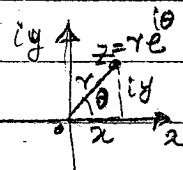 iy
z=re^{iθ}
r
θ
iy
o
x
x